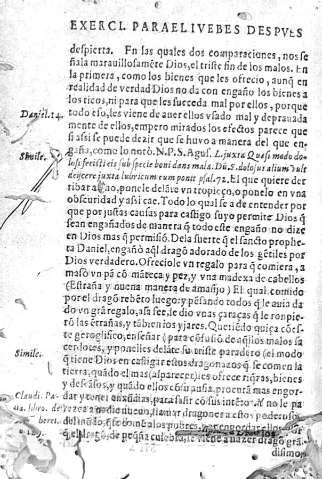 EXERCI. PARA EL IVEBES DESPVES
despierta. En las quales dos comparaciones, nos se
ñala marauillosamẽte Dios, el triste fin de los malos. En
la primera, como los bienes que les ofrecio, aunq̃ en
realidad de verdad Dios no da con engaño los bienes a
los ricos, ni para que les suceda mal por ellos, porque
todo eso, les viene de auer ellos vsado mal y deprauada
Daniel. 14.
mente de ellos, empero mirados los efectos parece que
si asi se puede dezir que se huvo a manera del que en-
Simile.
gaña, como lo notò. N.P.S. Agus. L. juxta Quasi modo do-
los fecisti eis sub specie boni dans mala. Dũ S. dolosus alium vult
deijcere juxta lubricum eum ponit psal. 72. El que quiere der
ribar a otro, ponele delãte vn tropieço, o ponelo en vna
obscuridad y asi cae. Todo lo qual se a de entender por
que por justas causas para castigo suyo permite Dios q̃
sean engañados de manera q̃ todo este engaño no dize
en Dios mas q̃ permisiõ. Dela suerte q̃ el sancto prophe-
ta Daniel, engañò aql̃ dragõ adorado de los gẽtiles por
Dios verdadero. Ofreciole vn regalo para q̃ comiera, a
masò vn pã cõ mãteca y pez, y vna madexa de cabellos
(Estraña y nueua manera de amasijo) El qual comido
por el dragõ rebẽto luego: y pẽsando todos q̃ le auia da
do vn grã regalo, asi fee, le dio vnas çaraças q̃ le rompie-
rõ las ẽtrañas, y tãbien los yjares. Queriẽdo quiça cões-
te geroglifico, enseñar (para cõfusiõ de aq̃llos malos sa
Simile.
cerdotes, y ponelles delãte su triste paradero (el modo
q̃ tiene Dios en castigar estos dragonazos q̃ se comen la
tierra, quãdo el mas (al parecer) les ofrece riq̃zas, bienes
y descãsos, y quãdo ellos cõ su ansia procurã mas engor-
Claudi. Pa
dar y tener enxũdias, para
dua. libro. de
beret.
los pobres,
el drago, de pequeña culebra, le viene a nazer dragõ grã
disimo,